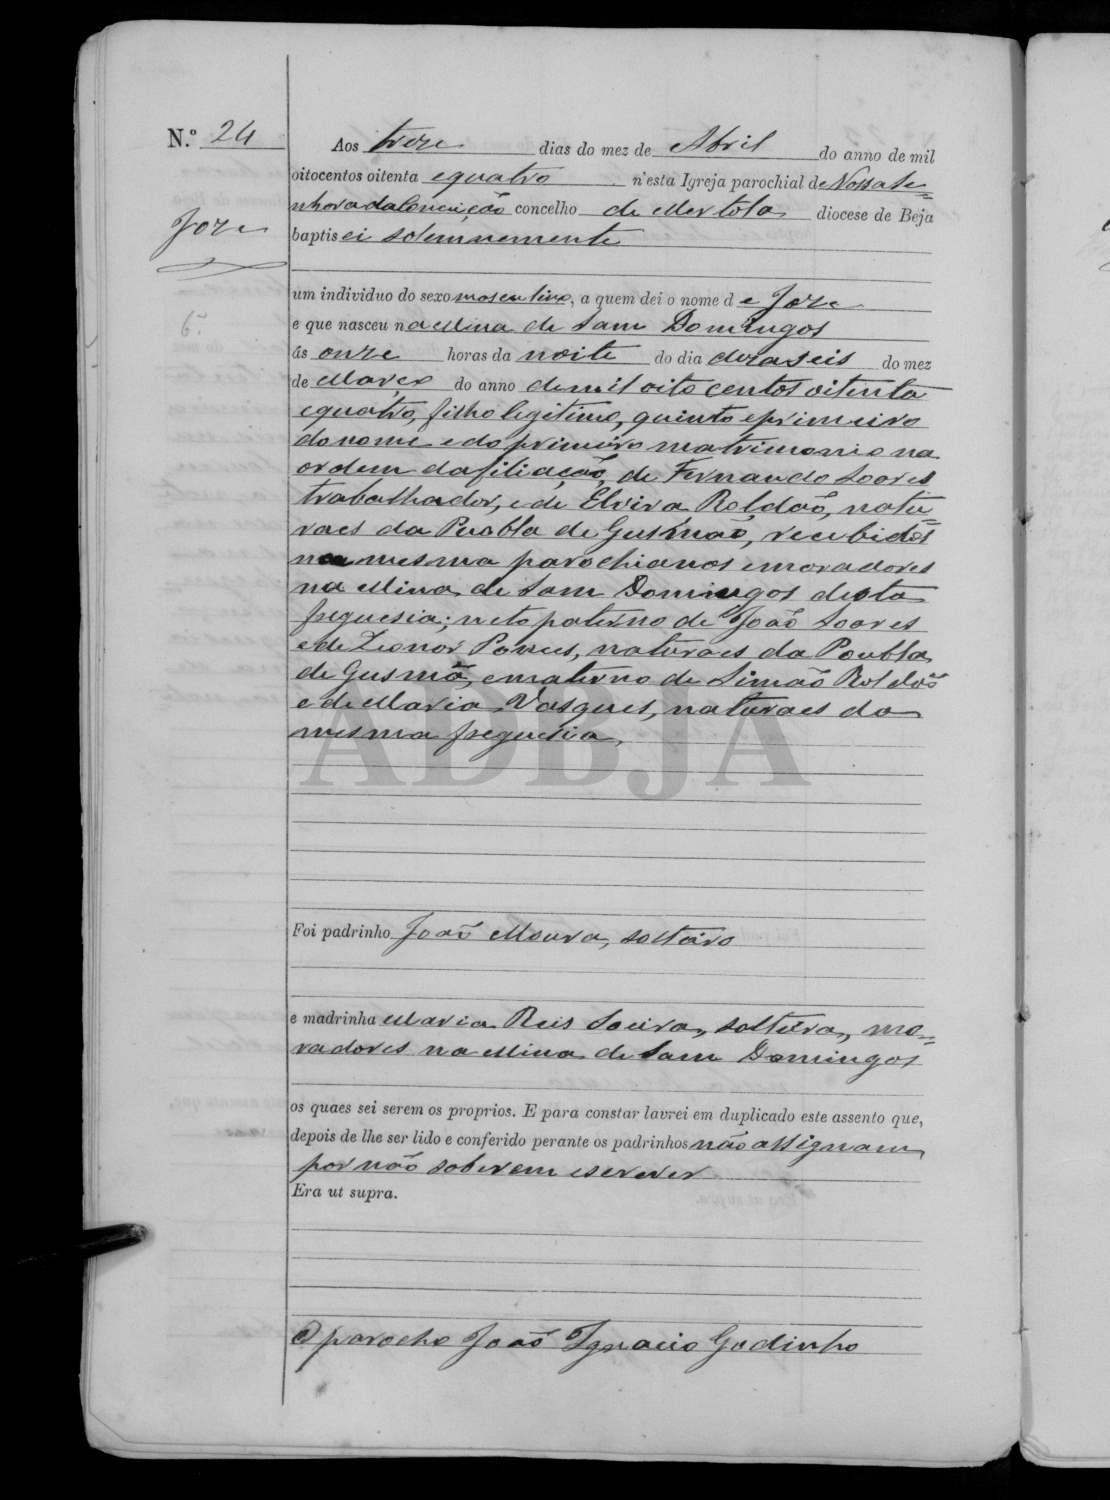 N.º 24
Aos treze dias do mez de Abril do anno de mil
oitocentos oitenta equatro n'esta Igreja parochial de Nossa Se=
nhora da Conceição concelho de Mertola diocese de Beja
Joze
baptisei solemnemente
um individuo do sexo masculino, a quem dei o nome de Joze
e que nasceu na Mina de Sam Domingos
ás onze horas da noite do dia dezaseis do mez
de Março do anno de mil oito centos oitenta
equatro, filho legitimo, quinto eprimeiro
do nome e do primeiro matrimonio na
ordem da filiação, de Fernando Soares
trabalhador, e de Elvira Roldão, natu=
raes da Puebla de Gusmão, recebidos
na mesma parochianos emoradores
na Mina de Sam Domingos desta
freguesia; neto paterno de João Soares
e de Leonor Ponces, naturaes da Puebla
de Gusmã, ematerno de Simão Roldão
e de Maria Vasques, naturaes da
mesma freguesia,
ADBJA
Foi padrinho João Moura, solteiro
e madrinha Maria Reis Soeira, solteira, mo=
radores na Mina de Sam Domingos
os quaes sei serem os proprios. E para constar lavrei em duplicado este assento que,
depois de lhe ser lido e conferido perante os padrinhos não assignam
por não saberem escrever
Era ut supra.
O parocho João Ignacio Godinho